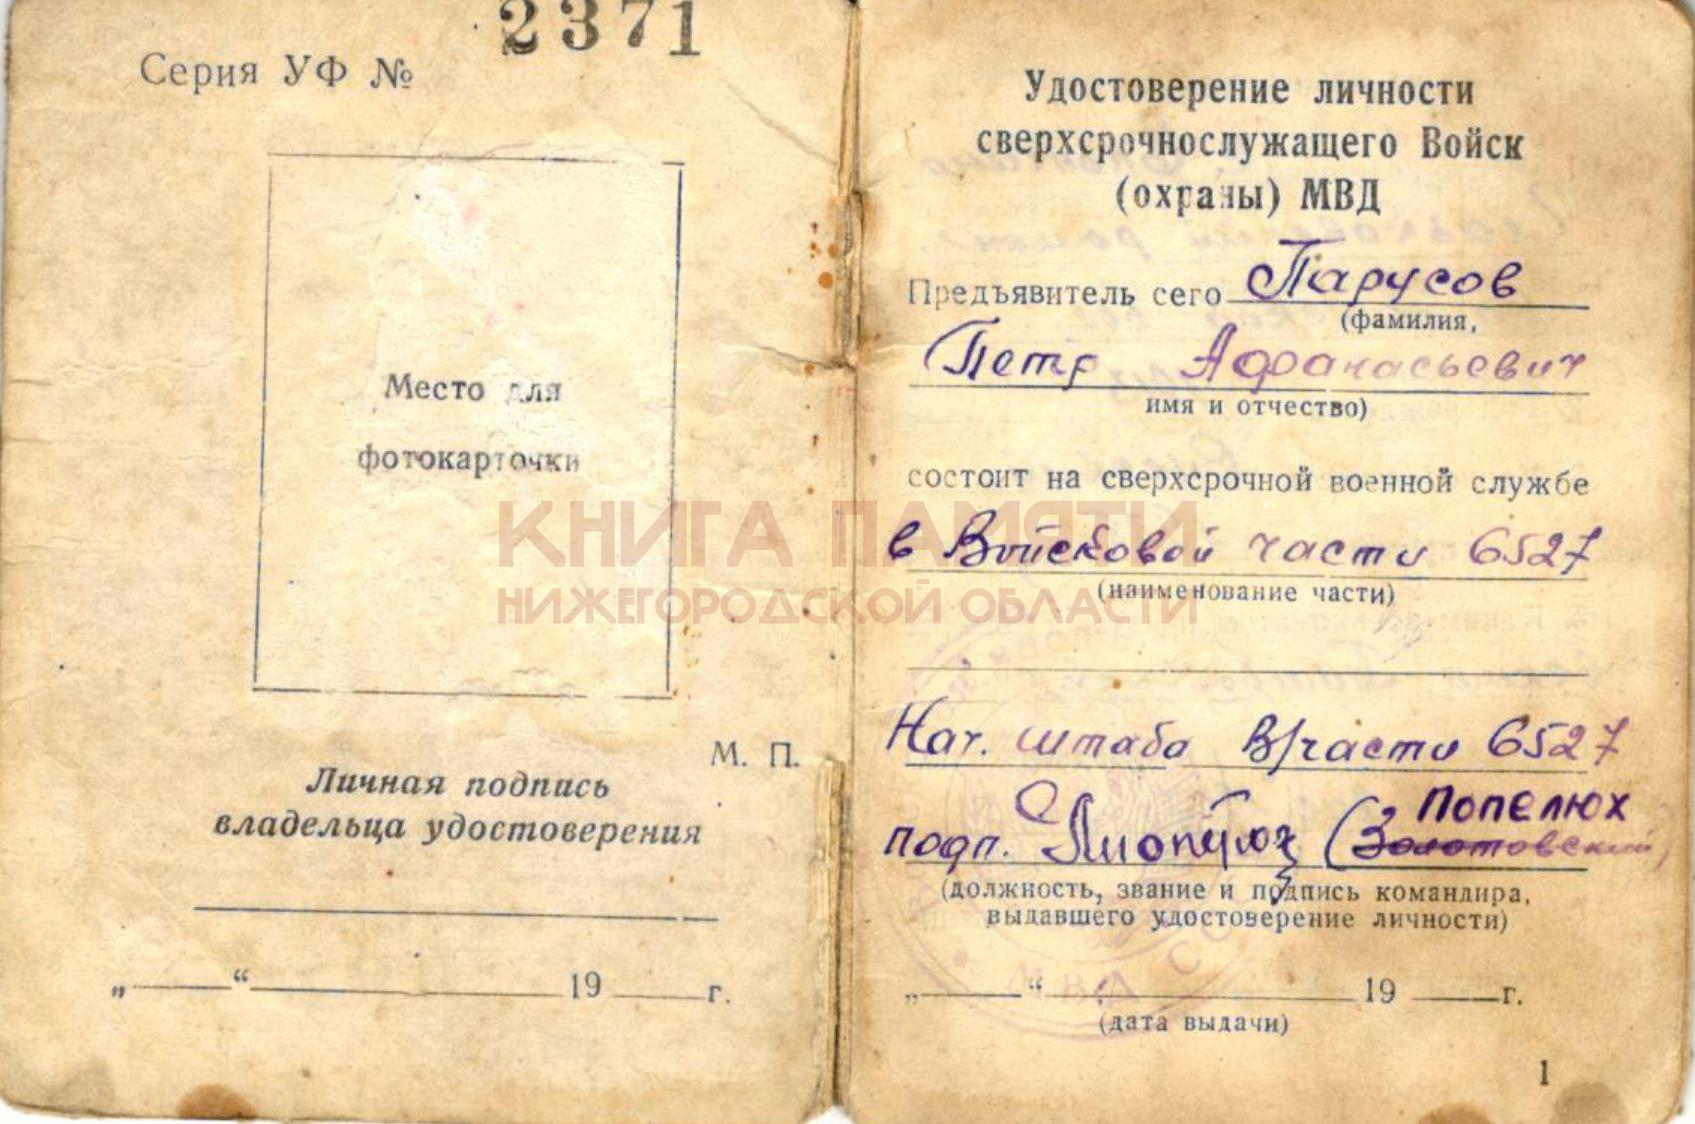 2371
Серия УФ №
Место для
фотокарточки
М. П.
Личная подпись
владельца удостоверения
„ “ 19 г.
Удостоверение личности
сверхсрочнослужащего Войск
(охраны) МВД
Предъявитель сего Парусов
(фамилия,
Петр Афанасьевич
имя и отчество)
состоит на сверхсрочной военной службе
в Войсковой части 6527
(наименование части)
Нач. штаба в/части 6527
Попелюх
подп. (Золотовский)
(должность, звание и подпись командира,
выдавшего удостоверение личности)
„ “ 19 г.
(дата выдачи)
МВД
1
КНИГА ПАМЯТИ
НИЖЕГОРОДСКОЙ ОБЛАСТИ